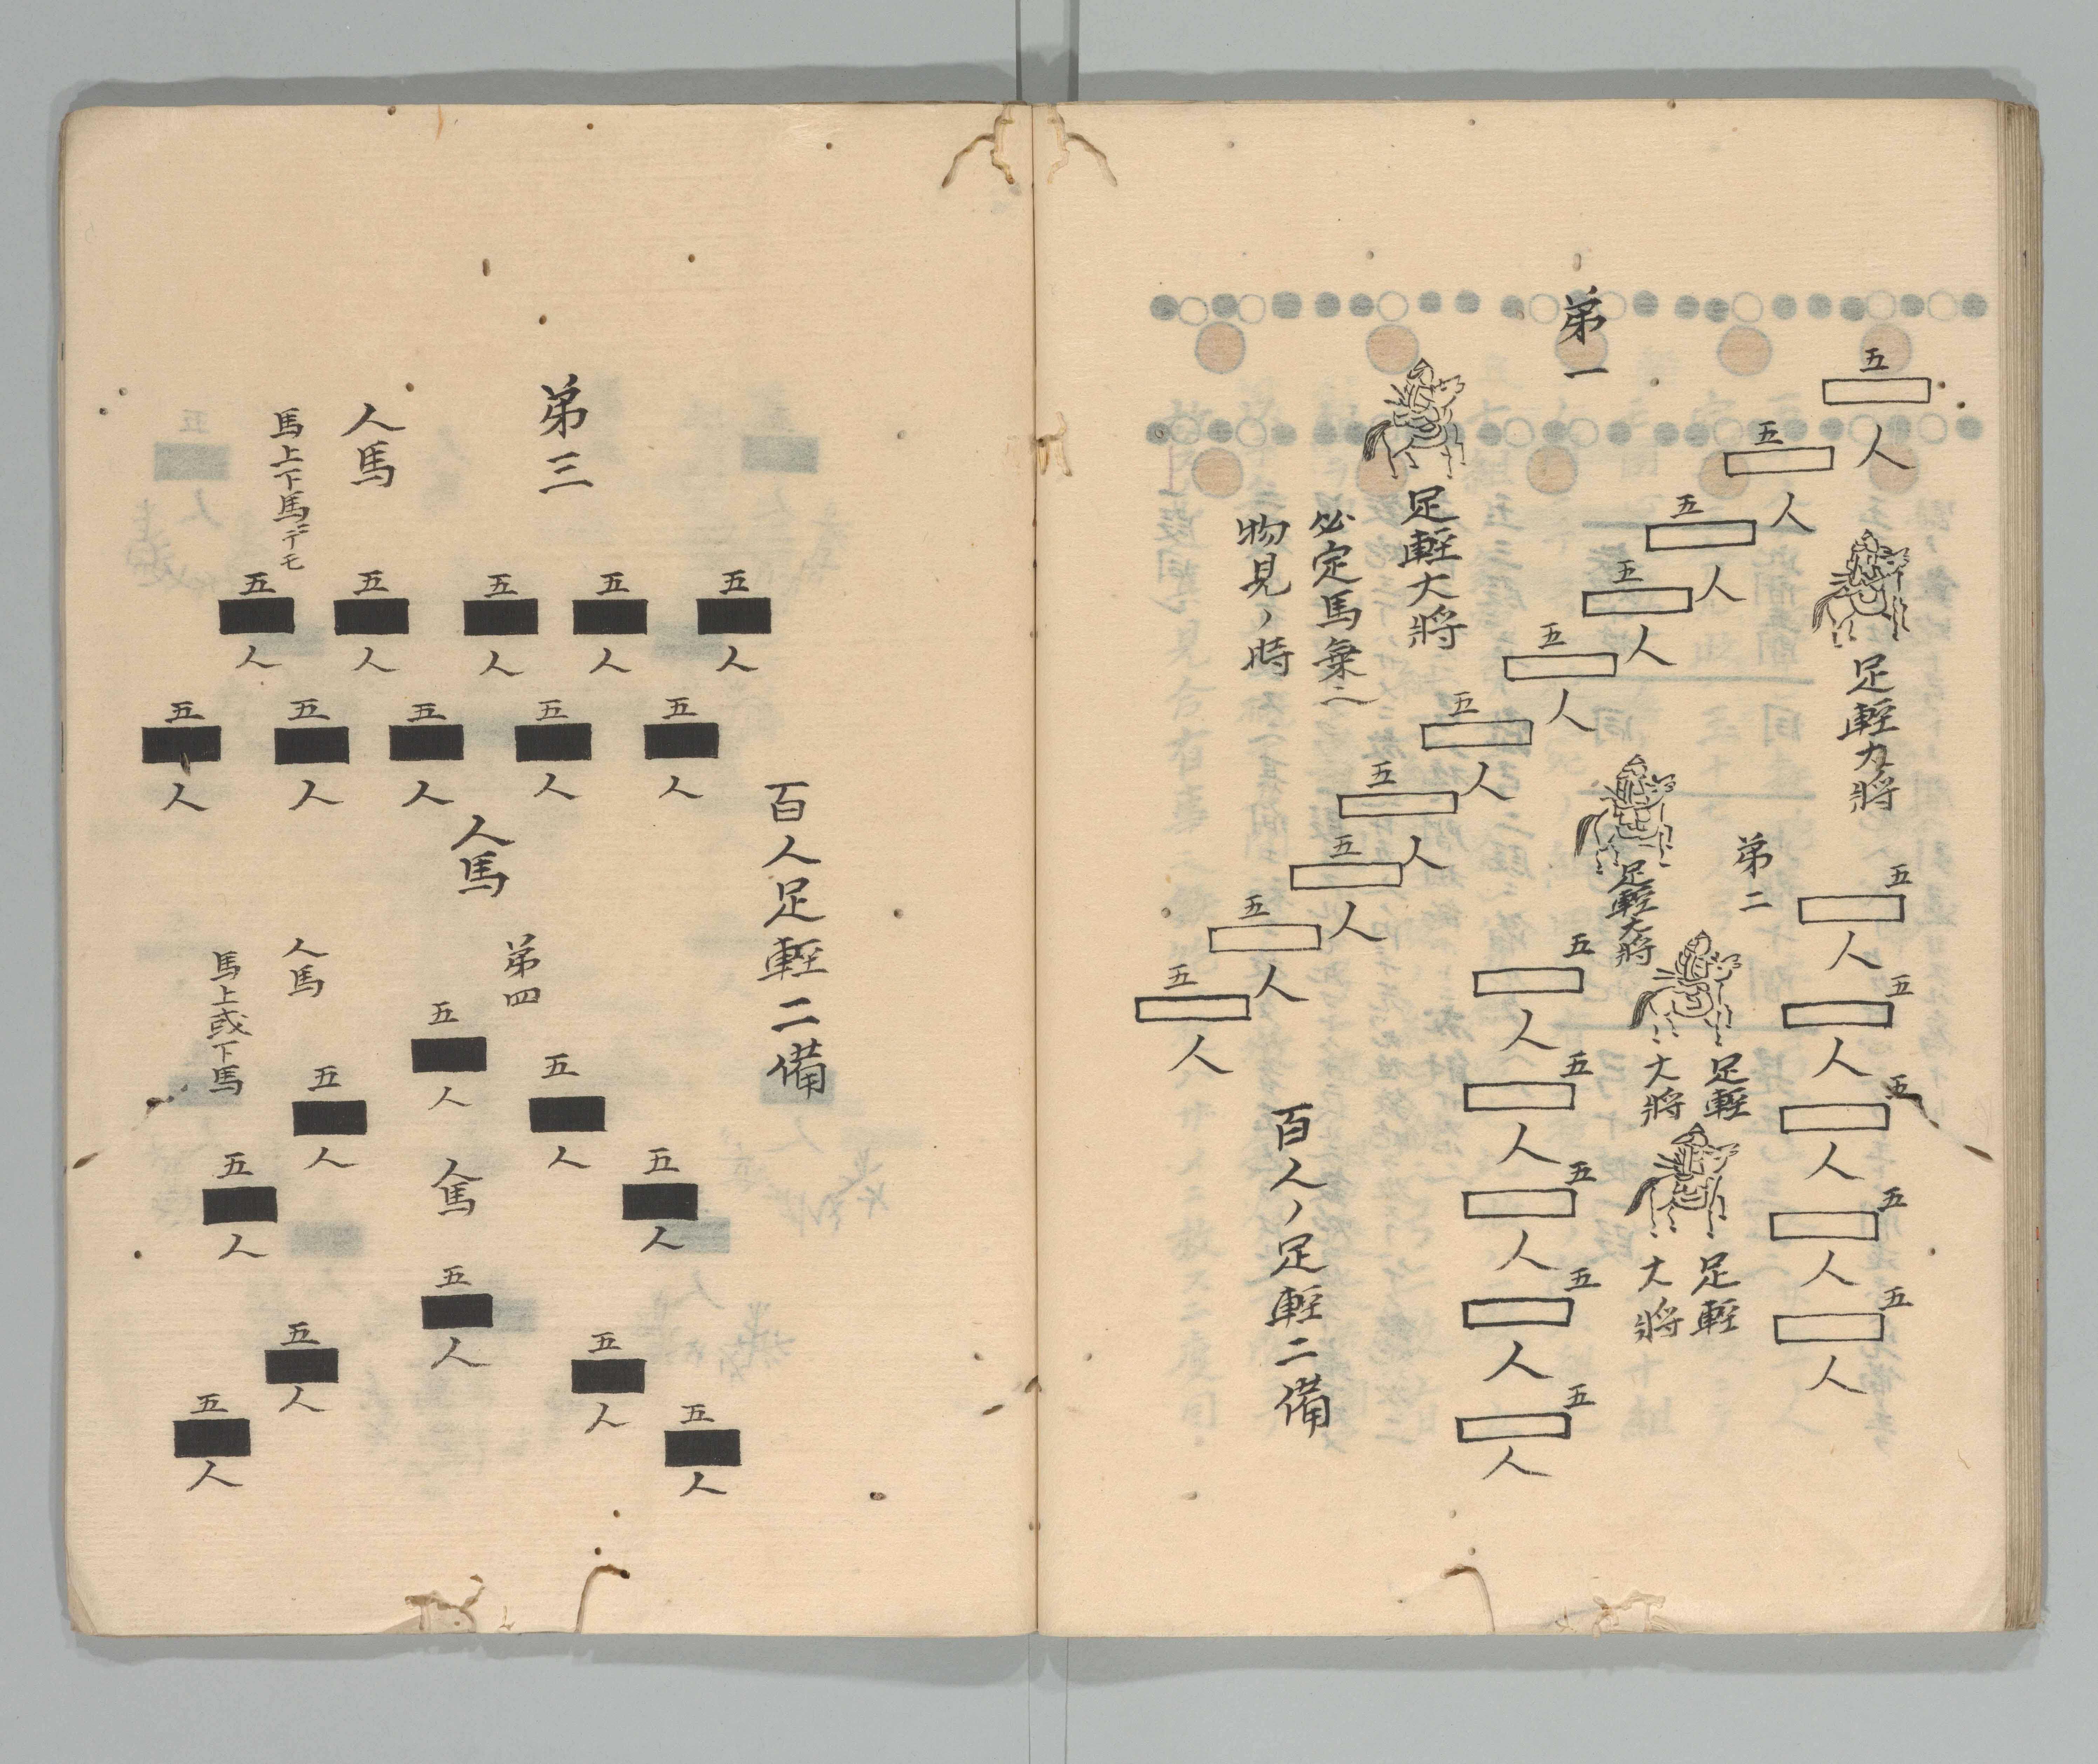 弟一
五
人
五
人
五
人
五
人
五
人
五
人
五
人
五
人
五
人
五
人
足軽大將
足軽大將
必定馬乗
物見ノ時
弟二
足軽大將
足軽
大將
足軽
大將
五
人
五
人
五
人
五
人
五
人
五
人
五
人
五
人
五
人
五
人
百人ノ足軽二備
百人足軽二備
弟三
人馬
馬上下馬ニテモ
五
人
五
人
五
人
五
人
五
人
五
人
五
人
五
人
五
人
五
人
人馬
弟四
人馬
馬上或下馬
五
人
五
人
五
人
五
人
五
人
人馬
五
人
五
人
五
人
五
人
五
人